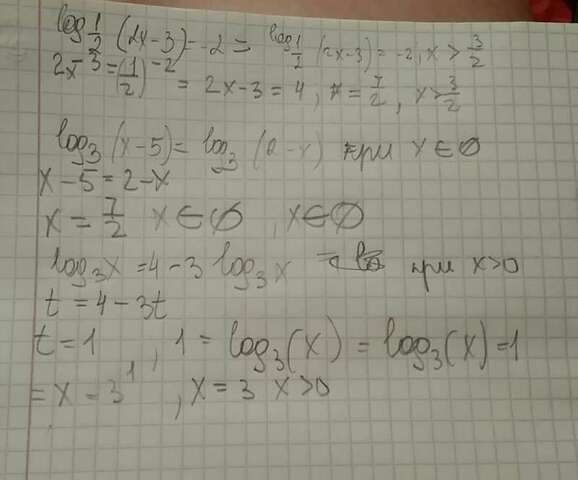 log 1/2 (2x-3)=-2 = log 1/2 (2x-3)=-2, x > 3/2
2x-3=(1/2)^-2 = 2x-3=4, x=7/2, x>3/2
log₃(x-5)=log₃(2-x) при x∈∅
x-5=2-x
x=7/2 x∈∅, x∈∅
log₃x=4-3log₃x при x>0
t=4-3t
t=1, 1=log₃(x)=log₃(x)=1
=x-3^1, x=3 x>0